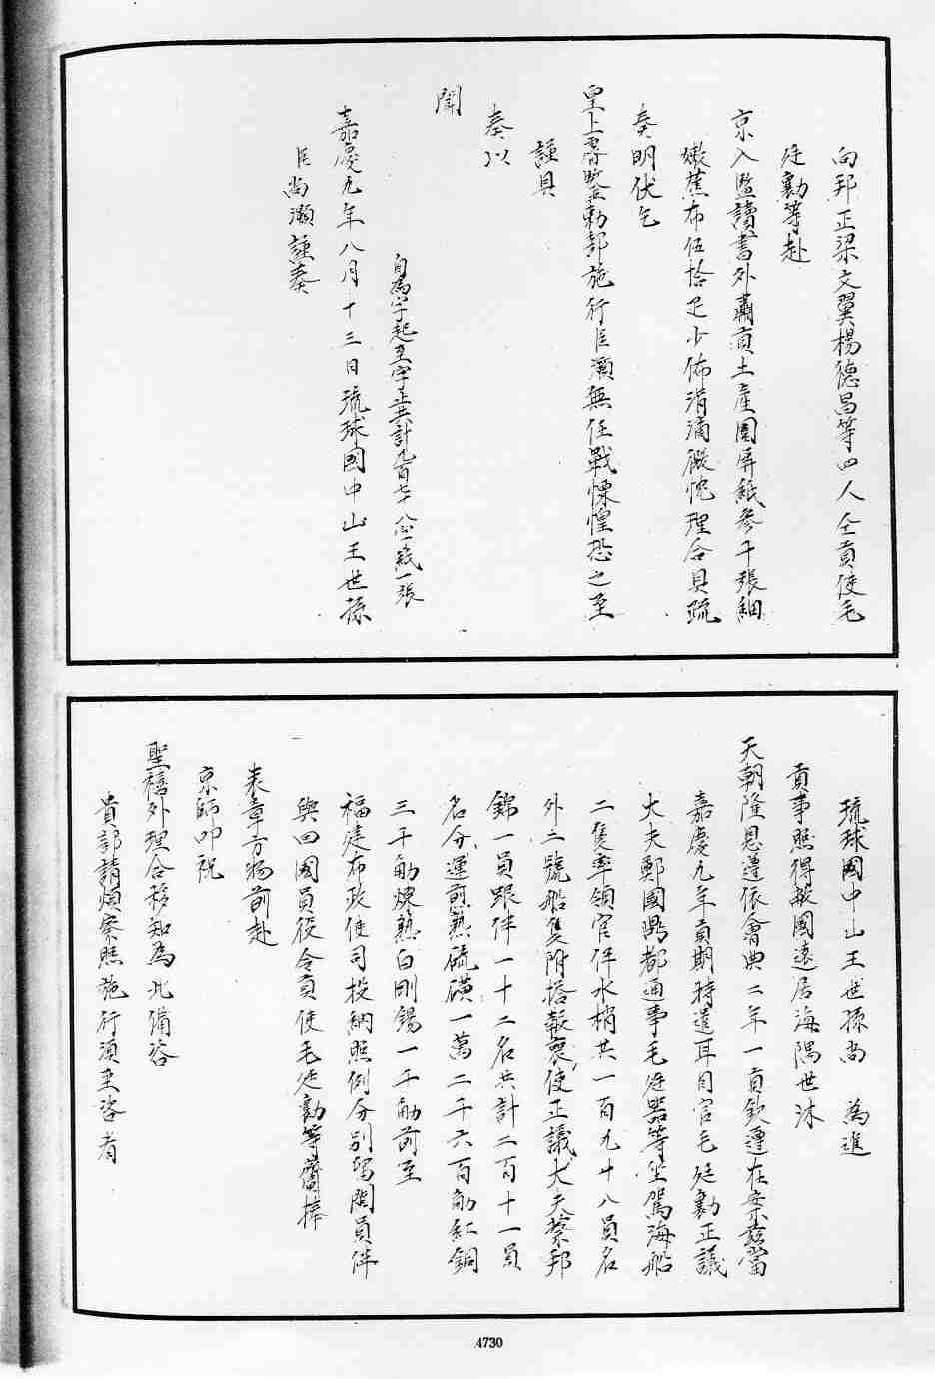 向邦正梁文翼楊德昌等四人仝貢使毛
廷勷等赴
京入監讀書外肅貢土產圍屏紙參千張細
嫩蕉布伍拾疋少佈涓滴微忱理合具疏
奏明伏乞
皇上睿鑒勅部施行臣灝無任戰慄惶恐之至
謹具
奏以
聞
自為字起至字止共計九百七十八個紙一張
嘉慶九年八月十三日琉球國中山王世孫
臣尚灝謹奏
琉球國中山王世孫尚　為進
貢事照得敝國遠居海隅世沐
天朝隆恩遵依會典二年一貢欽遵在案茲當
嘉慶九年貢期特遣耳目官毛廷勷正議
大夫鄭國鼎都通事毛廷器等坐駕海船
二隻率領官伴水梢共一百九十八員名
外二號船隻附搭報喪使正議大夫蔡邦
錦一員跟伴一十二名共計二百十一員
名分運煎熟硫磺一萬二千六百觔紅銅
三千觔煉熟白剛錫一千觔前至
福建布政使司投納照例分別留閩員伴
與回國員役令貢使毛廷勷等齎捧
表章方物前赴
京師叩祝
聖禧外理合移知為此備咨
貴部請煩察照施行須至咨者
4730